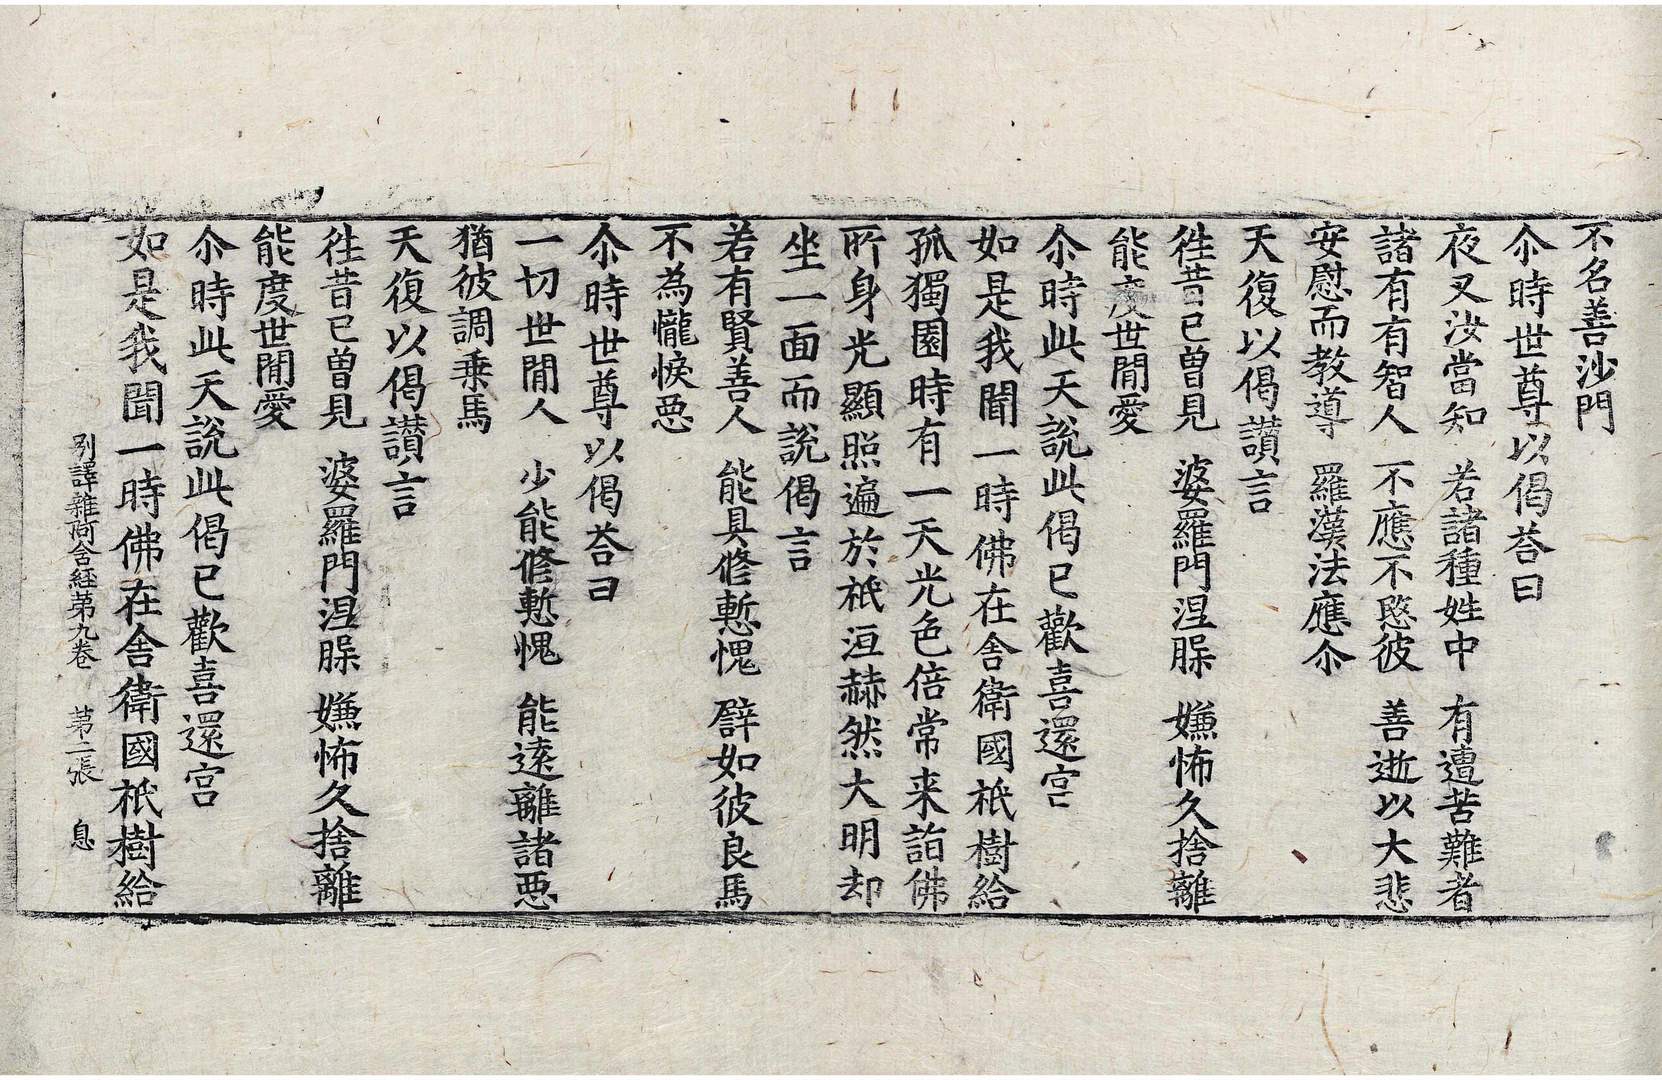 不名善沙門
尒時世尊以偈荅曰
夜叉汝當知 若諸種姓中 有遭苦難者
諸有有智人 不應不愍彼 善逝以大悲
安慰而教導 羅漢法應尒
天復以偈讃言
徃昔已曽見 婆羅門涅槃 嫌怖久捨離
能度世閒愛
尒時此天說此偈已歡喜還宫
如是我聞一時佛在舎衛國祇樹給
孤獨園時有一天光色倍常来詣佛
所身光顯照遍於祇洹赫然大明却
坐一面而說偈言
若有賢善人 能具修慙愧 譬如彼良馬
不為㦨悷惡
尒時世尊以偈荅曰
一切世閒人 少能修慙愧 能逺離諸惡
猶彼調乗馬
天復以偈讃言
徃昔已曽見 婆羅門涅槃 嫌怖久捨離
能度世閒愛
尒時此天說此偈已歡喜還宫
如是我聞一時佛在舎衛國祇樹給
別譯雜阿舎経第九卷 第二張 息